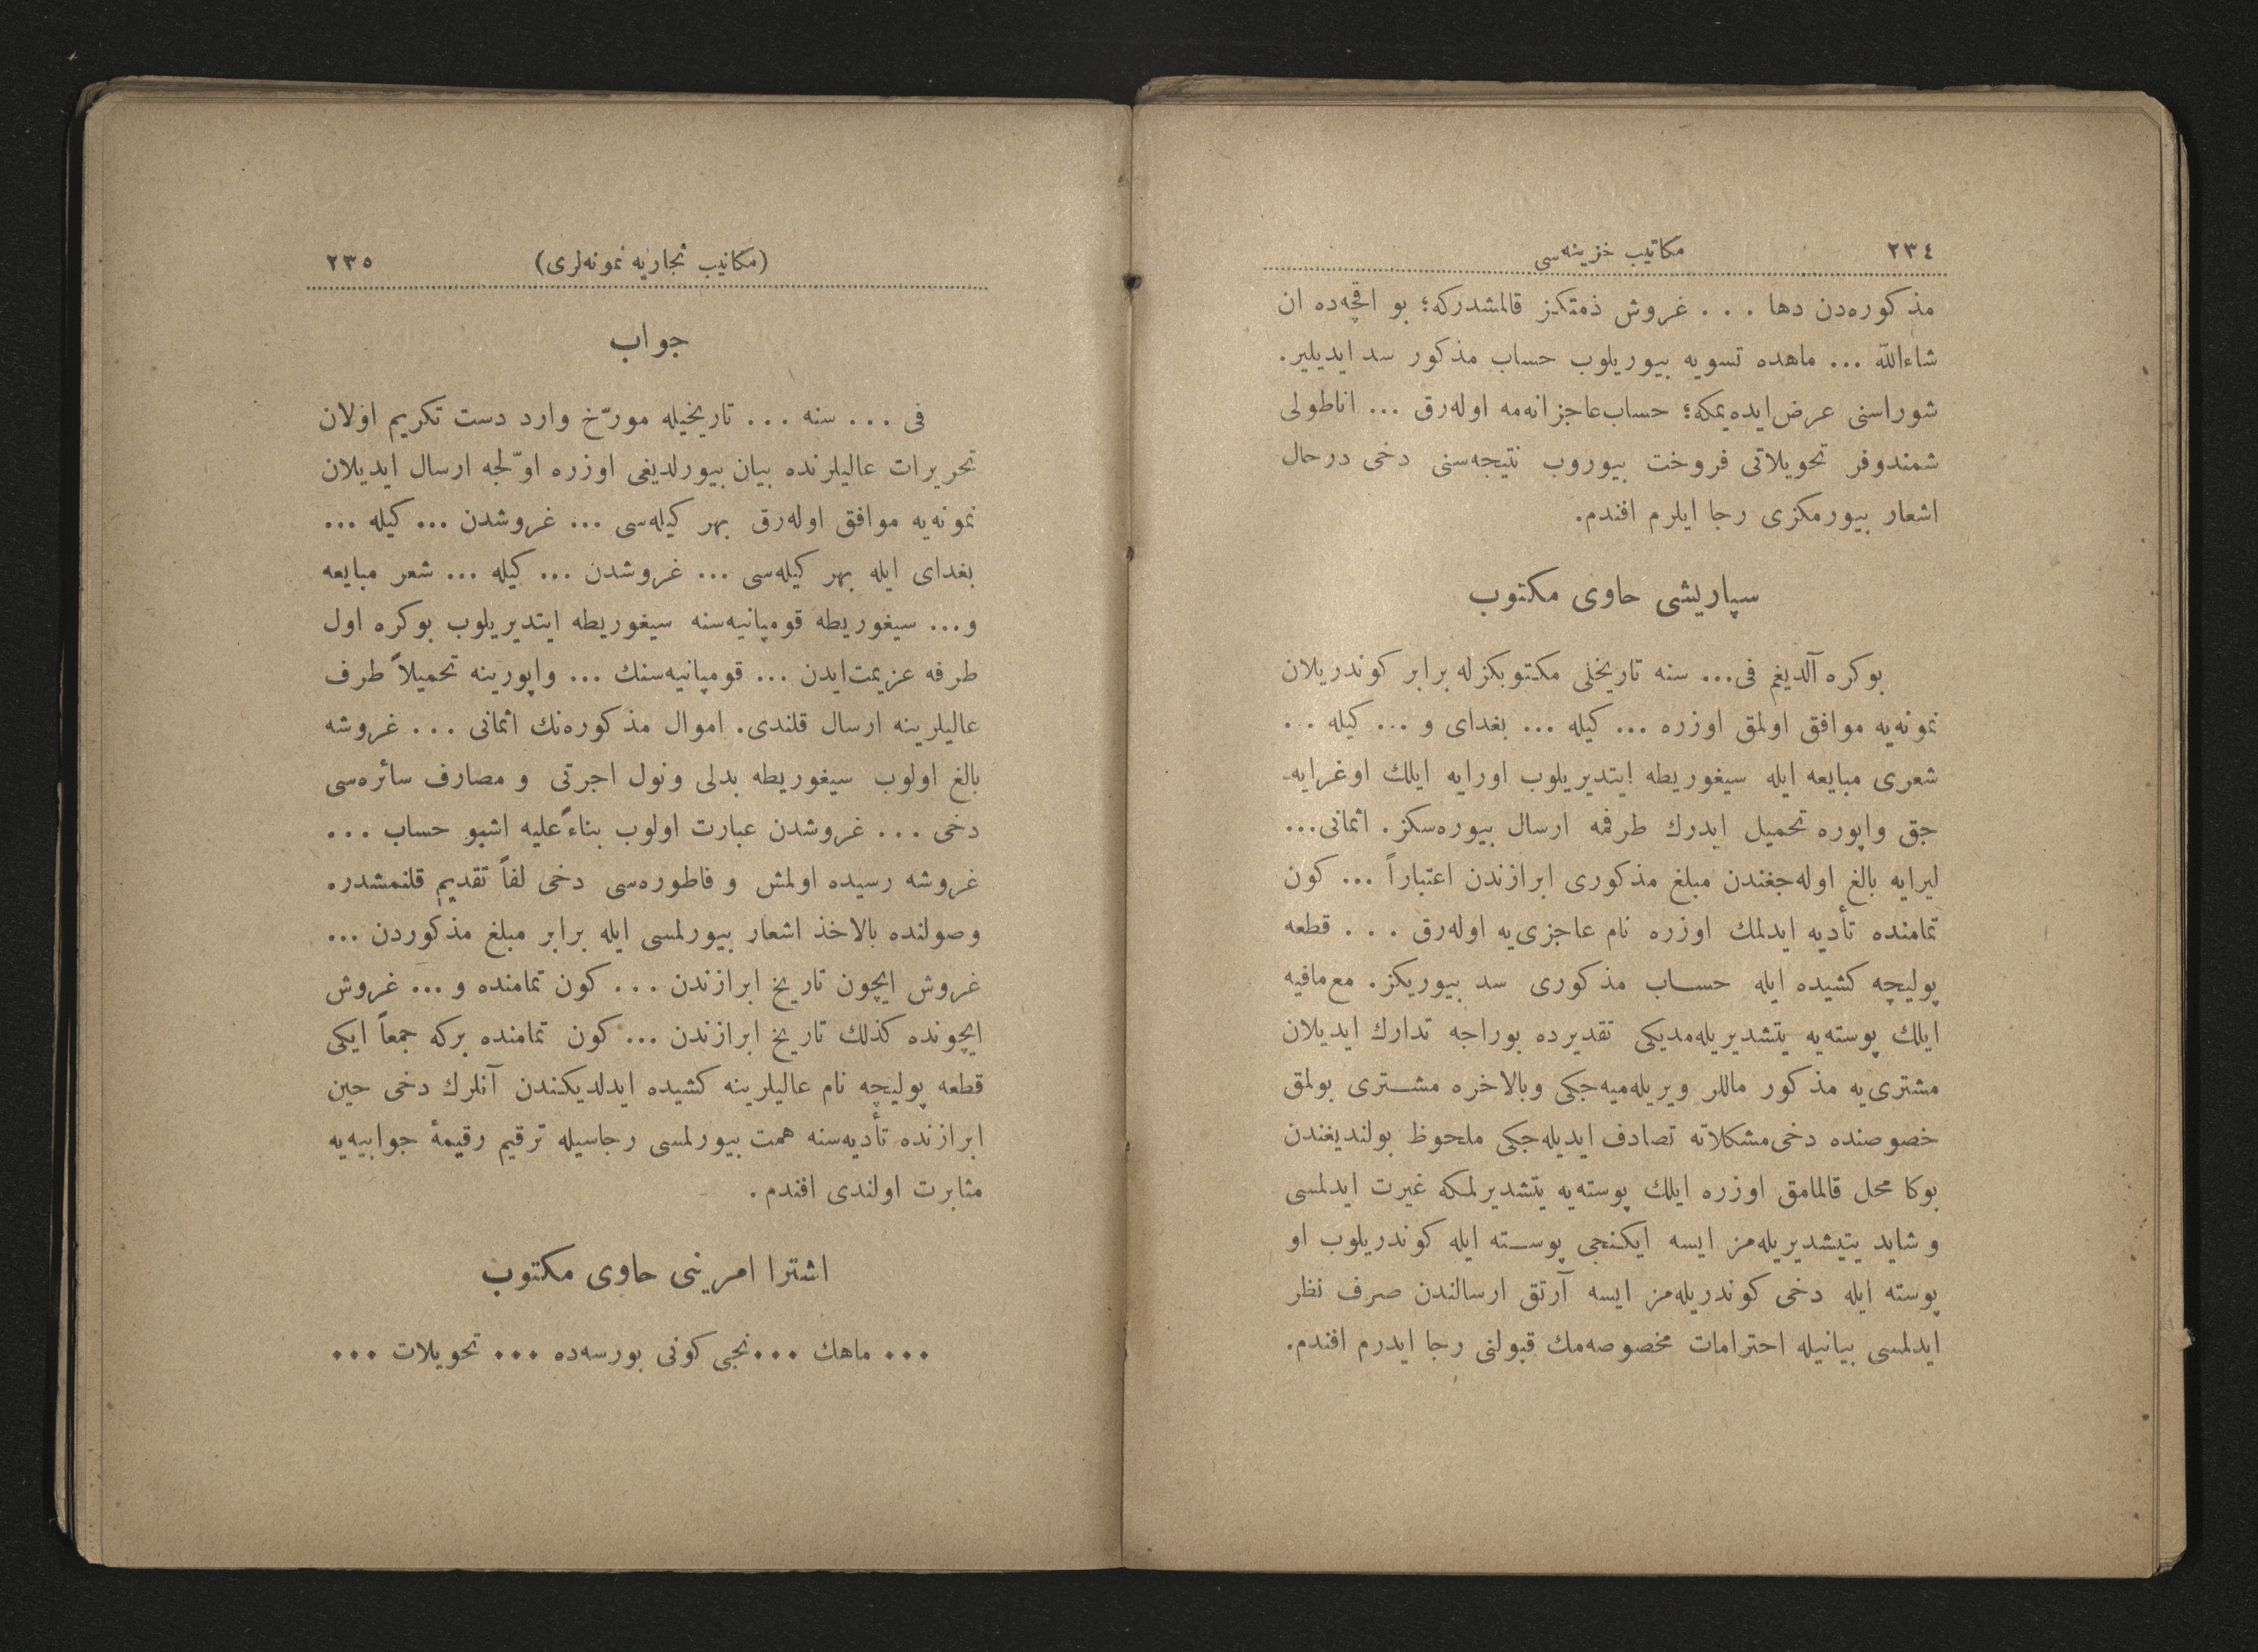 ٢٣٤ مكاتيب خزينه‌سى
مذكوره‌دن دها . . . غروش ذمتكز قالمشدركه؛ بو اقچه‌ده ان
شاءالله ... ماهده تسويه بيوريلوب حساب مذكور سد ايديلير.
شوراسنى عرض‌ايده‌يمكه؛ حساب‌عاجزانه‌مه اوله‌رق ... اناطولى
شمندوفر تحويلاتى فروخت بيوروب نتيجه‌سنى دخى درحال
اشعار بيورمكزى رجا ايلرم افندم.
سپاريشى حاوى مكتوب
بوكره آلديغم فى... سنه تاريخلى مكتوبكزله برابر كوندريلان
نمونه‌يه موافق اولمق اوزره ... كيله ... بغداى و ... كيله . .
شعرى مبايعه ايله سيغوريطه ايتديريلوب اورايه ايلك اوغرايه‌ـ
جق واپوره تحميل ايدرك طرفمه ارسال بيوره‌سكز. اثمانى...
ليرايه بالغ اوله‌جغندن مبلغ مذكورى ابرازندن اعتباراً ... كون
تمامنده تأديه ايدلمك اوزره نام عاجزى‌يه اوله‌رق . . . قطعه
پوليچه كشيده ايله حساب مذكورى سد بيوريكز. مع‌مافيه
ايلك پوسته‌يه يتشديريله‌مديكى تقديرده بوراجه تدارك ايديلان
مشترى‌يه مذكور ماللر ويريله‌ميه‌جكى وبالاخره مشترى بولمق
خصوصنده دخى‌مشكلاته تصادف ايديله‌جكى ملحوظ بولنديغندن
بوكا محل قالمامق اوزره ايلك پوسته‌يه يتشديرلمكه غيرت ايدلمسى
و شايد يتيشديريله‌مز ايسه ايكنجى پوسته ايله كوندريلوب او
پوسته ايله دخى كوندريله‌مز ايسه آرتق ارسالندن صرف نظر
ايدلمسى بيانيله احترامات مخصوصه‌مك قبولنى رجا ايدرم افندم.
(مكاتيب تجاريه نمونه‌لرى) ٢٣٥
جواب
فى ... سنه ... تاريخيله مورّخ وارد دست تكريم اولان
تحريرات عاليلرنده بيان بيورلديغى اوزره اوّلجه ارسال ايديلان
نمونه‌يه موافق اوله‌رق بهر كيله‌سى ... غروشدن ... كيله ...
بغداى ايله بهر كيله‌سى ... غروشدن ... كيله ... شعر مبايعه
و... سيغوريطه قومپانيه‌سنه سيغوريطه ايتديريلوب بوكره اول
طرفه عزيمت‌ايدن ... قومپانيه‌سنك ... واپورينه تحميلاً طرف
عاليلرينه ارسال قلندى. اموال مذكوره‌نك اثمانى ... غروشه
بالغ اولوب سيغوريطه بدلى ونول اجرتى و مصارف سائره‌سى
دخى ... غروشدن عبارت اولوب بناءً‌عليه اشبو حساب ...
غروشه رسيده اولمش و فاطوره‌سى دخى لفاً تقديم قلنمشدره
وصولنده بالاخذ اشعار بيورلمسى ايله برابر مبلغ مذكوردن ...
غروش ايچون تاريخ ابرازندن ... كون تمامنده و ... غروش
ايچونده كذلك تاريخ ابرازندن ... كون تمامنده بركه جمعاً ايكى
قطعه پوليچه نام عاليلرينه كشيده ايدلديكندن آنلرك دخى حين
ابرازنده تأديه‌سنه همت بيورلمسى رجاسيله ترقيم رقيمهٔ جوابيه‌يه
مثابرت اولندى افندم.
اشترا امرينى حاوى مكتوب
... ماهك ...نجى كونى بورسه‌ده ... تحويلات ...